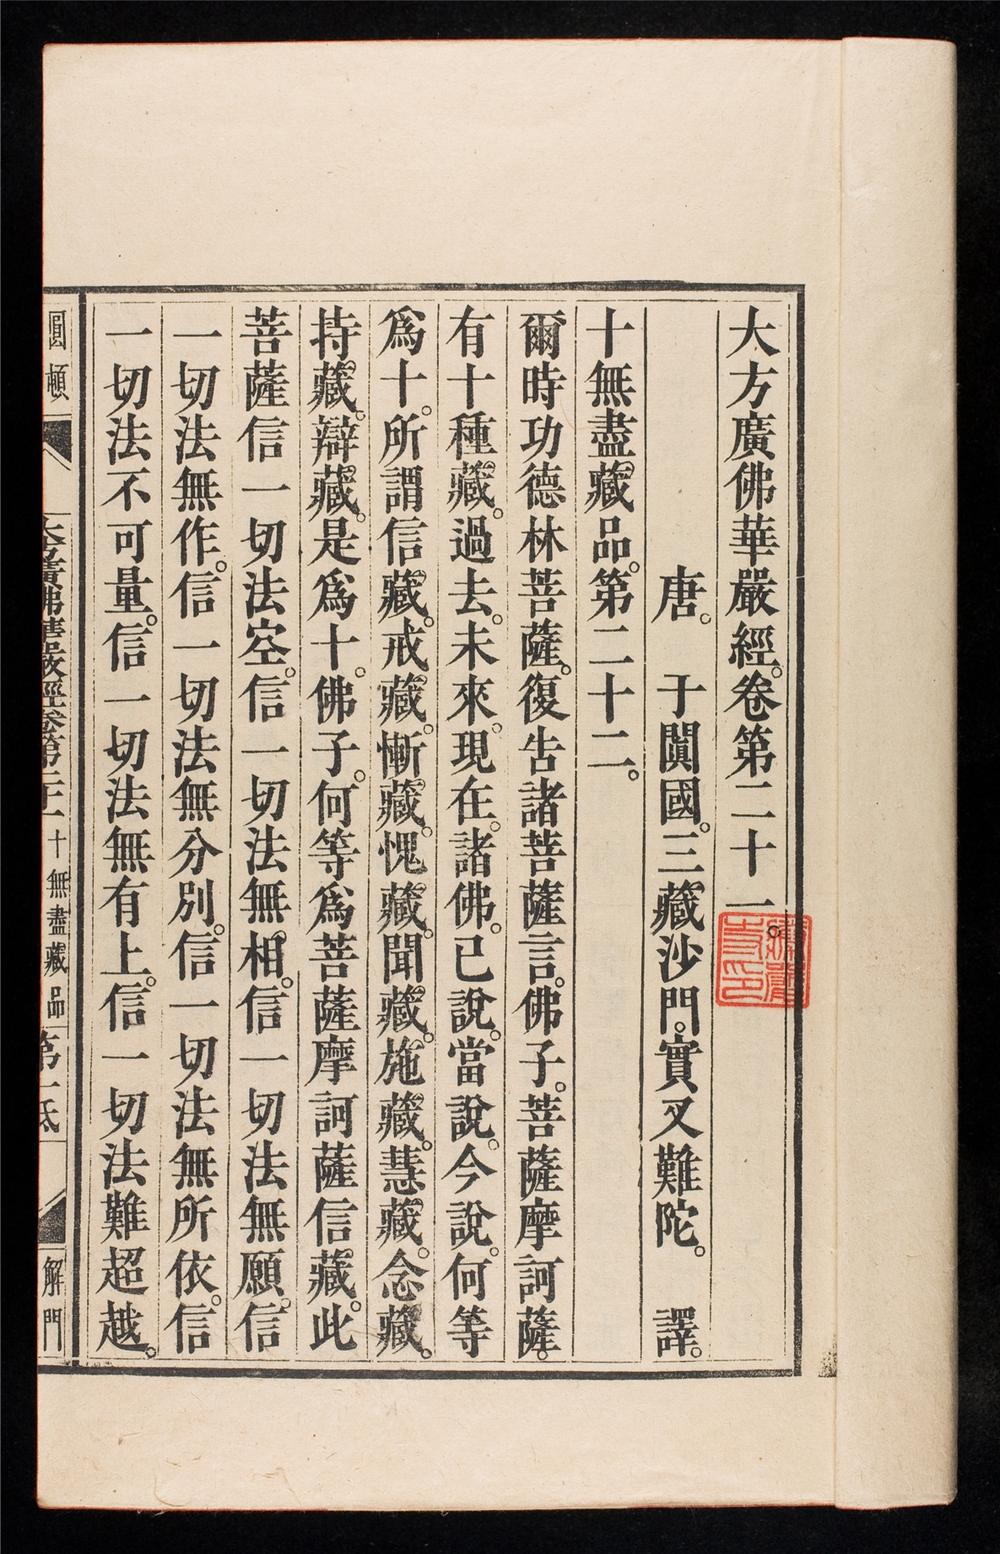 大方廣佛華嚴經。卷第二十一。
唐。 于闐國。三藏沙門。實叉難陀。 譯。
十無盡藏品。第二十二。
爾時功德林菩薩。復告諸菩薩言。佛子。菩薩摩訶薩。
有十種藏。過去。未來。現在。諸佛。已說。當說。今說。何等
爲十。所謂信藏。戒藏。慚藏。愧藏。聞藏。施藏。慧藏。念藏。
持藏。辯藏。是爲十。佛子。何等爲菩薩摩訶薩信藏。此
菩薩信一切法空。信一切法無相。信一切法無願。信
一切法無作。信一切法無分別。信一切法無所依。信
一切法不可量。信一切法無有上。信一切法難超越。
圓頓
大方廣佛華嚴經卷第二十一 十無盡藏品 第一紙
解門